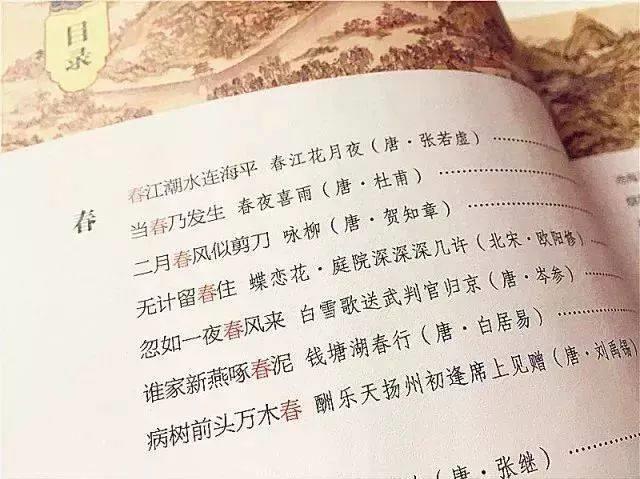 目录
春
春江潮水连海平 春江花月夜（唐·张若虚）…………
当春乃发生 春夜喜雨（唐·杜甫）…………
二月春风似剪刀 咏柳（唐·贺知章）…………
无计留春住 蝶恋花·庭院深深深几许（北宋·欧阳修）
忽如一夜春风来 白雪歌送武判官归京（唐·岑参）…………
谁家新燕啄春泥 钱塘湖春行（唐·白居易）…………
病树前头万木春 酬乐天扬州初逢席上见赠（唐·刘禹锡）
（唐·张继）…………